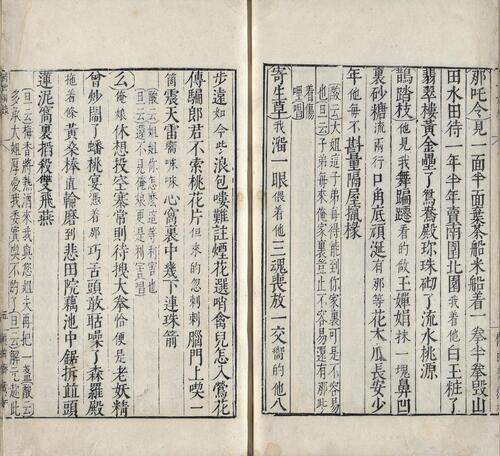 那吒令見一面半面棄茶船米船着一拳半拳毀山
田水田待一年半年賣南園北園我着他白玉粧了
翡翠樓黃金壘了鴛鴦殿珎珠砌了流水桃源
鵲踏枝他見我舞蹁躚看的做王嬋娟抹一塊鼻凹
裏砂糖流兩行口角底頑涎有那等花木瓜長安少
年他每不斟量隔屋攛椽
酸云大姐這子弟每得能到你家裏可是不容易
也旦云子弟每來俺家裏豈止不容易還有那些
看傷
寄生草我溜一眼偎着他三魂喪放一交嚮的他八
步遠如今些浪包嘍難註煙花選哨禽兒怎入鶯花
傳騙郎君不索桃花片但來的忽剌剌腦門上喫一
箇震天雷
么俺娘休想投空寨常則待拽大拳恰便是老妖精
曾妙鬧了蟠桃宴憑着那巧舌頭敢聒噪了森羅殿
拖着條黃桑棒直輪磨到悲田院藕池中鋸折並頭
蓮泥窩裏搯殺雙飛燕
旦云梅香將熱酒來我與您姐夫再把一盞酸云
多承大姐厚愛我委實喫不的了旦云解元趁此